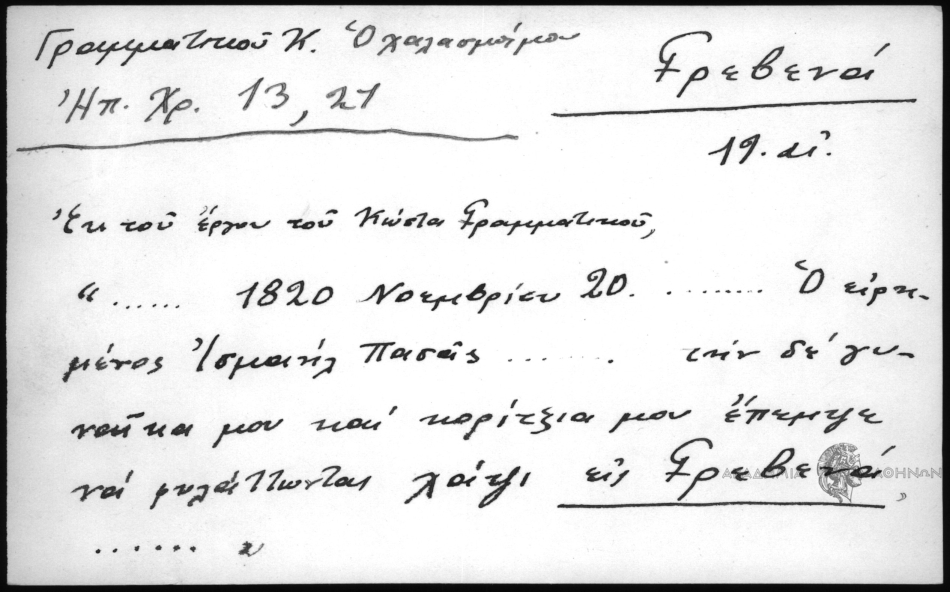 Γραμματικοῦ Κ. Ὁ χαλασμός μου
Ἠπ. Χρ. 13, 21
Γρεβενά
19. αἰ.
Ἐκ τοῦ ἔργου τοῦ Κώστα Γραμματικοῦ,
“...... 1820 Νοεμβρίου 20. ......... Ὁ εἰρη-
μένος Ἰσμαήλ Πασᾶς ....... τήν δέ γυ-
ναῖκα μου καί κορίτζια μου ἔπεμψε
νά φυλάττωνται χάψι εἰς Γρεβενά,
...... „
ΑΚΑΔΗΜΙΑ ΑΘΗΝΩΝ